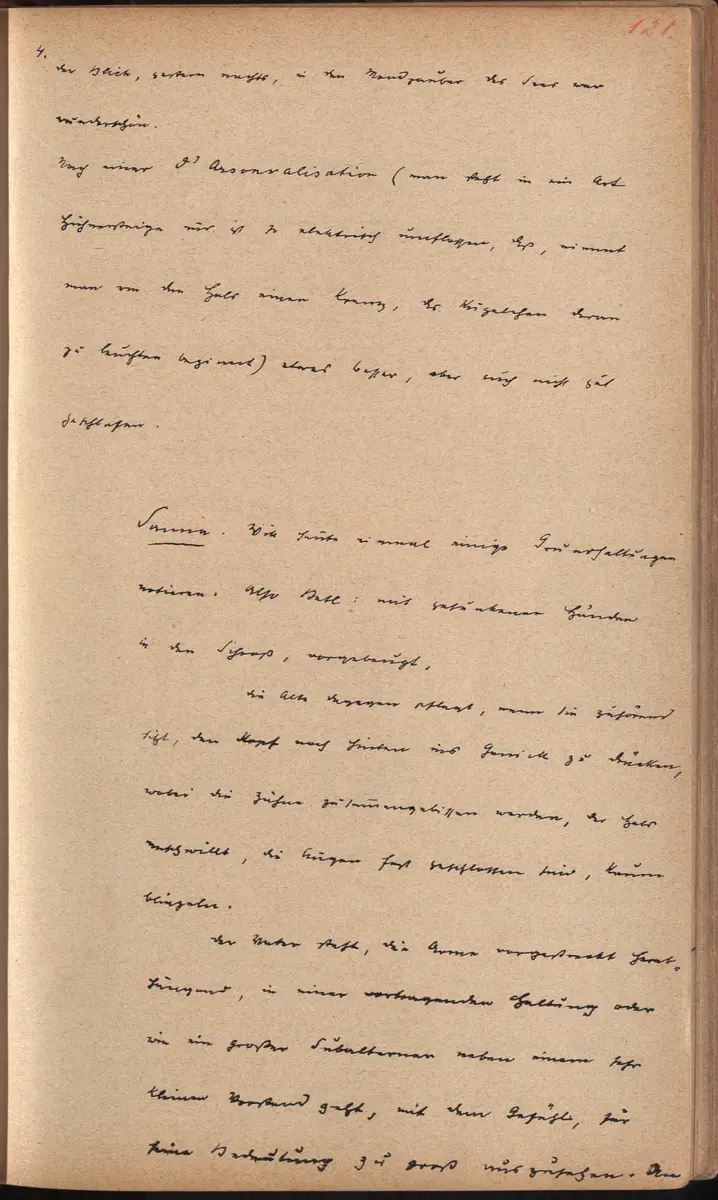 121.
4.
der Blick, gestern nachts, in den Mondzauber des Sees war
wunderschön.
Nach einer D'Arsonvalisation (man steht in ein Art
Hühnersteige und ist so elektrisch umflossen, daß, nimmt
man um den Hals einen Kranz, die Kügelchen daran
zu leuchten beginnt) etwas besser, aber auch nicht gut
geschlafen.
Will heute einmal einige Grundhaltungen
notieren. Also Betl: mit gesunkenen Händen
in den Schooß, vorgebeugt,
die Alte dagegen pflegt, wenn sie zuhörend
sitzt, den Kopf nach hinten ins Genick zu drücken,
wobei die Zähne zusammengebissen werden, der Hals
anschwillt, die Augen fast geschlossen sind, kaum
blinzeln.
der Vater steht, die Arme vorgestreckt herab-
hängend, in einer vortragenden Haltung oder
wie ein großer Subalterner neben einem sehr
kleinen Vorstand geht, mit dem Gefühl, für
seine Bedeutung zu groß auszusehen. Den